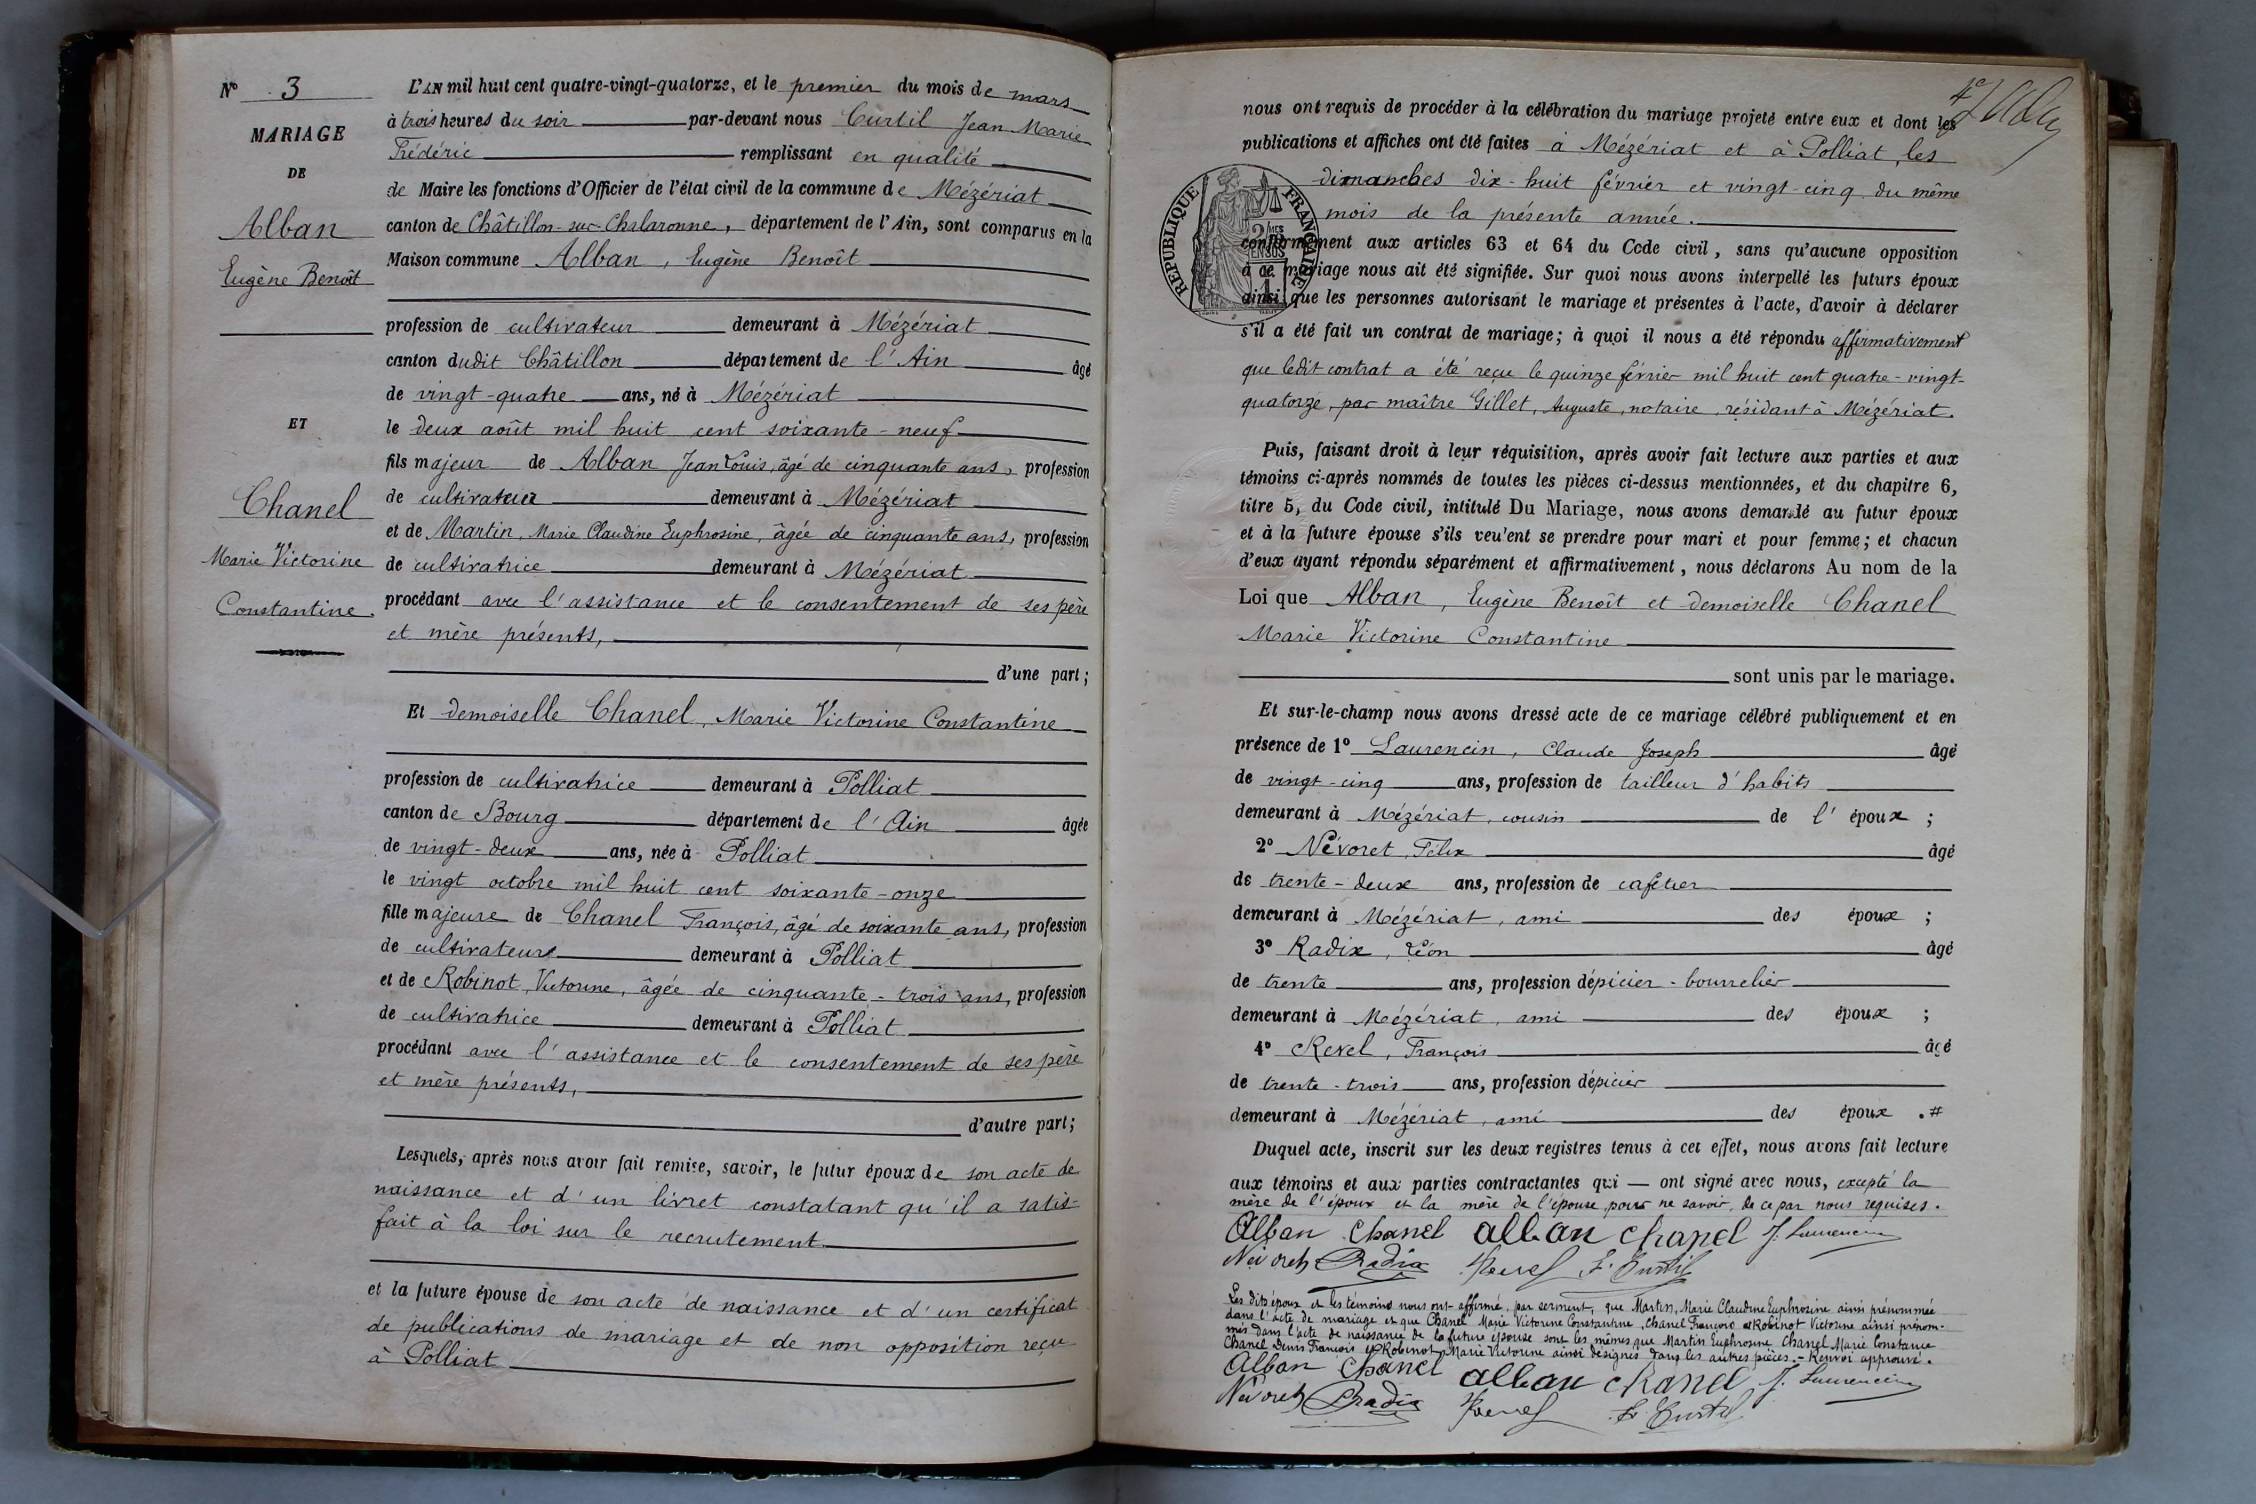 N° 3
MARIAGE
DE
Alban
Eugène Benoît
ET
Chanel
Marie Victorine
Constantine.
L'AN mil huit cent quatre-vingt-quatorze, et le premier du mois de mars
à trois heures du soir par-devant nous Curtil Jean Marie
Frédéric remplissant en qualité
de Maire les fonctions d'Officier de l'état civil de la commune de Mézériat
canton de Châtillon-sur-Chalaronne, département de l'Ain, sont comparus en la
Maison commune Alban, Eugène Benoît
profession de cultivateur demeurant à Mézériat
canton dudit Châtillon département de l'Ain âgé
de vingt-quatre ans, né à Mézériat
le deux août mil huit cent soixante-neuf
fils majeur de Alban Jean Louis, âgé de cinquante ans, profession
de cultivateur demeurant à Mézériat
et de Martin, Marie Claudine Euphrosine, âgée de cinquante ans, profession
de cultivatrice demeurant à Mézériat
procédant avec l'assistance et le consentement de ses père
et mère présents,
d'une part;
Et demoiselle Chanel, Marie Victorine Constantine
profession de cultivatrice demeurant à Polliat
canton de Bourg département de l'Ain âgée
de vingt-deux ans, née à Polliat
le vingt octobre mil huit cent soixante-onze
fille majeure de Chanel François, âgé de soixante ans, profession
de cultivateur demeurant à Polliat
et de Robinot, Victorine, âgée de cinquante-trois ans, profession
de cultivatrice demeurant à Polliat
procédant avec l'assistance et le consentement de ses père
et mère présents,
d'autre part;
Lesquels, après nous avoir fait remise, savoir, le futur époux de son acte de
naissance et d'un livret constatant qu'il a satis-
fait à la loi sur le recrutement
et la future épouse de son acte de naissance et d'un certificat
de publications de mariage et de non opposition reçu
à Polliat
nous ont requis de procéder à la célébration du mariage projeté entre eux et dont les
publications et affiches ont été faites à Mézériat et à Polliat, les
dimanches dix-huit février et vingt-cinq du même
mois de la présente année.
RÉPUBLIQUE FRANÇAISE
conformément aux articles 63 et 64 du Code civil, sans qu'aucune opposition
à ce mariage nous ait été signifiée. Sur quoi nous avons interpellé les futurs époux
ainsi que les personnes autorisant le mariage et présentes à l'acte, d'avoir à déclarer
s'il a été fait un contrat de mariage; à quoi il nous a été répondu affirmativement
que ledit contrat a été reçu le quinze février mil huit cent quatre-vingt-
quatorze, par maître Gillet, Auguste, notaire, résidant à Mézériat.
Puis, faisant droit à leur réquisition, après avoir fait lecture aux parties et aux
témoins ci-après nommés de toutes les pièces ci-dessus mentionnées, et du chapitre 6,
titre 5, du Code civil, intitulé Du Mariage, nous avons demandé au futur époux
et à la future épouse s'ils veulent se prendre pour mari et pour femme; et chacun
d'eux ayant répondu séparément et affirmativement, nous déclarons Au nom de la
Loi que Alban, Eugène Benoît et demoiselle Chanel
Marie Victorine Constantine
sont unis par le mariage.
Et sur-le-champ nous avons dressé acte de ce mariage célébré publiquement et en
présence de 1° Laurencin, Claude Joseph âgé
de vingt-cinq ans, profession de tailleur d'habits
demeurant à Mézériat, cousin de l'époux;
2° Névoret, Félix âgé
de trente-deux ans, profession de cafetier
demeurant à Mézériat, ami des époux;
3° Radix, Léon âgé
de trente ans, profession d'épicier-bourrelier
demeurant à Mézériat, ami des époux;
4° Revel, François âgé
de trente-trois ans, profession d'épicier
demeurant à Mézériat, ami des époux. #
Duquel acte, inscrit sur les deux registres tenus à cet effet, nous avons fait lecture
aux témoins et aux parties contractantes qui — ont signé avec nous, excepté la
mère de l'époux et la mère de l'épouse pour ne savoir, de ce par nous requises.
Alban Chanel alban chanel J. Laurencin
Névoret Radix Revel F. Curtil
Les dits époux et les témoins nous ont affirmé, par serment, que Martin, Marie Claudine Euphrosine ainsi prénommée
dans l'acte de mariage et que Chanel Marie Victorine Constantine, Chanel François et Robinot Victorine ainsi prénom-
més dans l'acte de naissance de la future épouse sont les mêmes que Martin Euphrosine, Chanel Marie Constance
Chanel Denis François et Robinot Marie Victorine ainsi désignés dans les autres pièces. - Renvoi approuvé.
Alban Chanel alban chanel J. Laurencin
Névoret Radix Revel F. Curtil